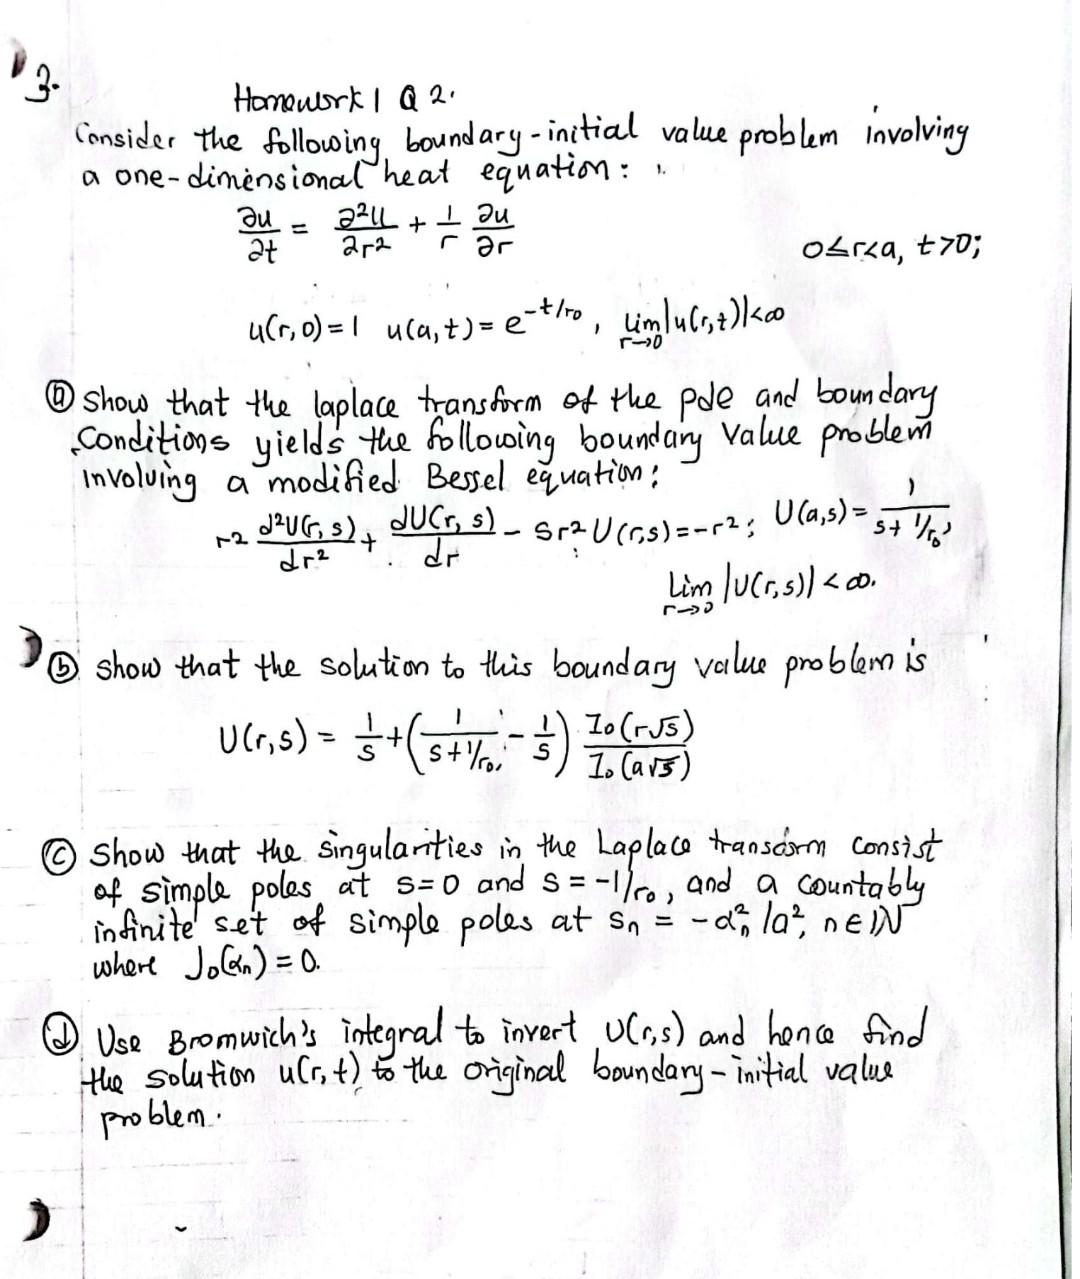 3.
Homework 1 Q 2.
Consider the following boundary-initial value problem involving
a one-dimensional heat equation:
∂u/∂t = ∂²u/∂r² + 1/r ∂u/∂r    0≤r<a, t>0;
u(r,0)=1  u(a,t)= e^(-t/r₀), lim_(r→0) |u(r,t)|<∞
ⓐ Show that the laplace transform of the pde and boundary
Conditions yields the following boundary Value problem
involving a modified Bessel equation;
r² d²U(r,s)/dr² + dU(r,s)/dr - Sr² U(r,s)=-r²; U(a,s)= 1/(s+1/r₀),
Lim_(r→0) |U(r,s)| < ∞.
ⓑ show that the solution to this boundary value problem is
U(r,s) = 1/s + (1/(s+1/r₀) - 1/s) I₀(r√s)/I₀(a√s)
ⓒ Show that the singularities in the Laplace transform consist
of simple poles at s=0 and s=-1/r₀, and a countably
infinite set of simple poles at sₙ = -αₙ²/a², n∈ℕ
where J₀(αₙ)=0.
ⓓ Use Bromwich's integral to invert U(r,s) and hence find
the solution u(r,t) to the original boundary-initial value
problem.